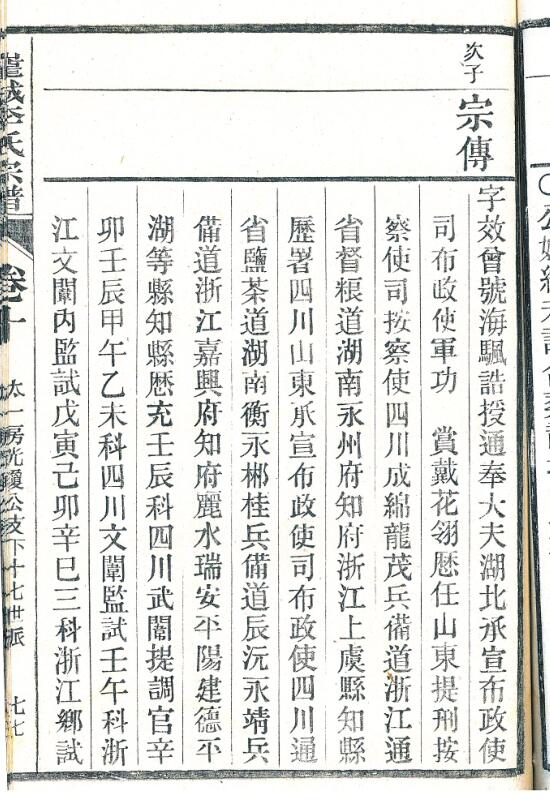 次子
宗傳
字效曾號海颿誥授通奉大夫湖北承宣布政使
司布政使軍功　賞戴花翎歷任山東提刑按
察使司按察使四川成綿龍茂兵備道浙江通
省督粮道湖南永州府知府浙江上虞縣知縣
歷署四川山東承宣布政使司布政使四川通
省鹽茶道湖南衡永郴桂兵備道辰沅永靖兵
備道浙江嘉興府知府麗水瑞安平陽建德平
湖等縣知縣歷充壬辰科四川武闈提調官辛
卯壬辰甲午乙未科四川文闈監試壬午科浙
江文闈内監試戊寅己卯辛巳三科浙江鄉試
氏宗譜
卷十
太一房洗瓊公支下十七世派
七七